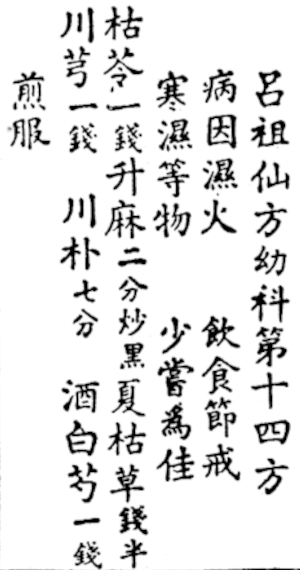 呂祖仙方幼科第十四方
病因濕火　飲食節戒
寒濕等物　少嘗為佳
枯芩一錢升麻二分炒黑夏枯草錢半
川芎一錢　川朴七分　酒白芍一錢
煎服